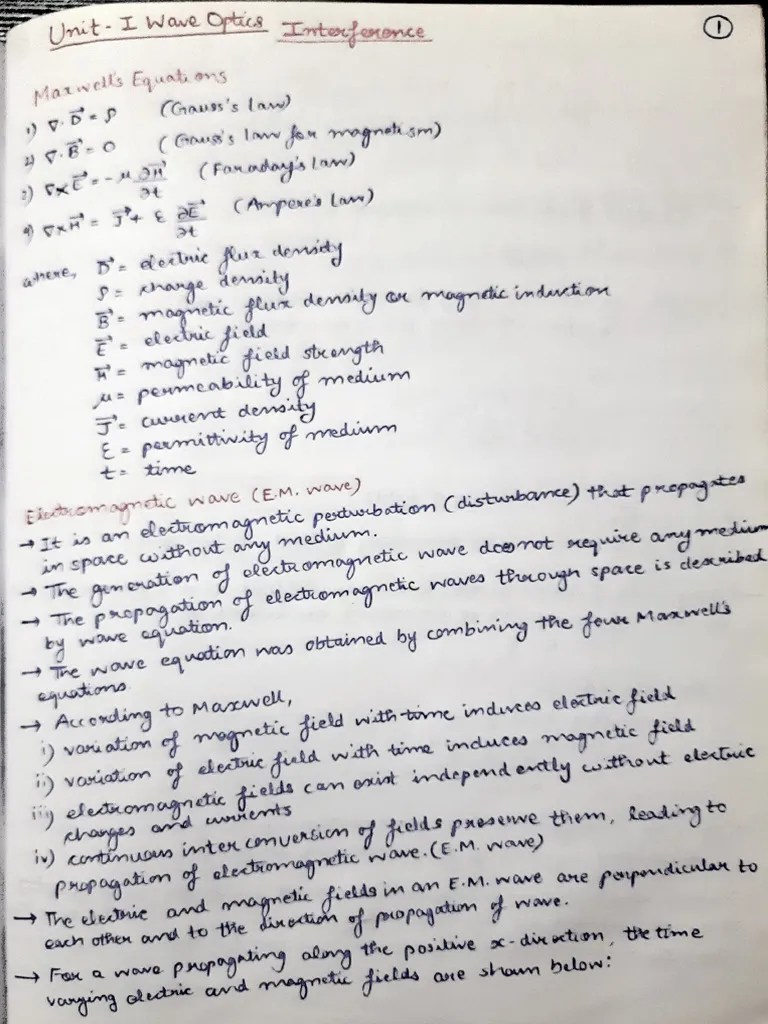 Unit - I Wave Optics Interference
1
Maxwell's Equations
1) ∇. D⃗ = ρ (Gauss's law)
2) ∇. B⃗ = 0 (Gauss's law for magnetism)
3) ∇xE⃗ = -μ ∂H⃗/∂t (Faraday's law)
4) ∇xH⃗ = J⃗ + ε ∂E⃗/∂t (Ampere's law)
where, D⃗ = electric flux density
ρ = charge density
B⃗ = magnetic flux density or magnetic induction
E⃗ = electric field
H⃗ = magnetic field strength
μ = permeability of medium
J⃗ = current density
ε = permittivity of medium
t = time
Electromagnetic wave (E.M. wave)
→ It is an electromagnetic perturbation (disturbance) that propagates
in space without any medium.
→ The generation of electromagnetic wave does not require any medium
→ The propagation of electromagnetic waves through space is described
by wave equation.
→ The wave equation was obtained by combining the four Maxwell's
equations.
→ According to Maxwell,
i) variation of magnetic field with time induces electric field
ii) variation of electric field with time induces magnetic field
iii) electromagnetic fields can exist independently without electric
charges and currents
iv) continuous inter conversion of fields preserve them, leading to
propagation of electromagnetic wave. (E.M. wave)
→ The electric and magnetic fields in an E.M. wave are perpendicular to
each other and to the direction of propagation of wave.
→ For a wave propagating along the positive x-direction, the time
varying electric and magnetic fields are shown below: